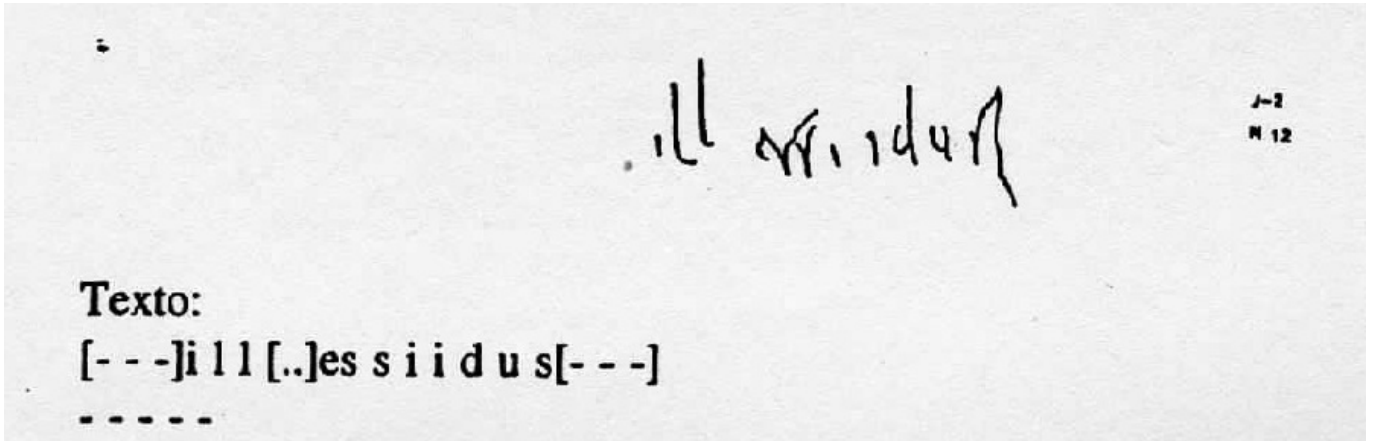 J-2
N 12
Texto:
[- - -]i l l [..]es s i i d u s[- - -]
- - - - -